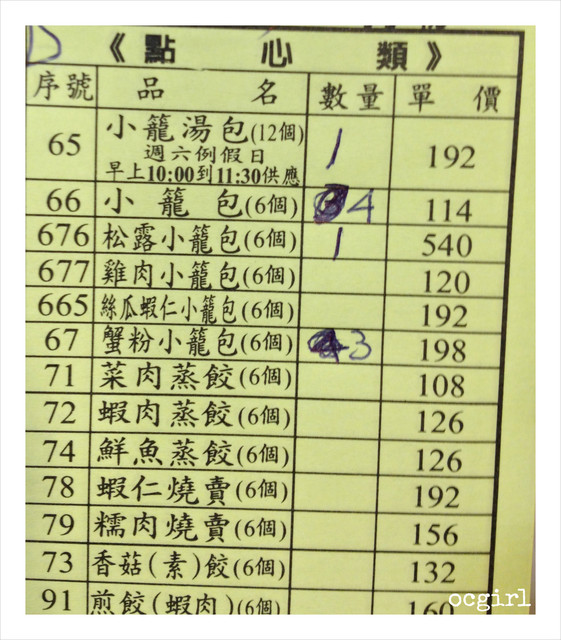 《點 心 類》
序號 品 名 數量 單 價
65 小籠湯包(12個) 1 192
週六例假日
早上10:00到11:30供應
66 小 籠 包(6個) 4 114
676 松露小籠包(6個) 1 540
677 雞肉小籠包(6個) 120
665 絲瓜蝦仁小籠包(6個) 192
67 蟹粉小籠包(6個) 3 198
71 菜肉蒸餃(6個) 108
72 蝦肉蒸餃(6個) 126
74 鮮魚蒸餃(6個) 126
78 蝦仁燒賣(6個) 192
79 糯肉燒賣(6個) 156
73 香菇(素)餃(6個) 132
91 煎餃(蝦肉)(6個) 160
ocgirl